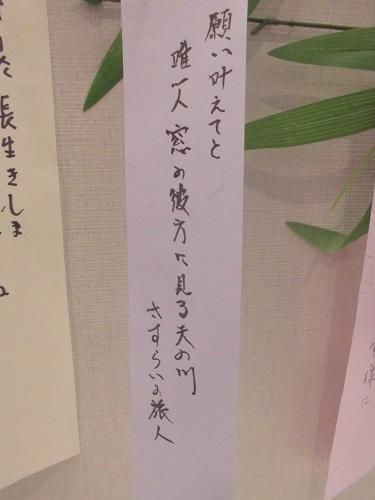 願い叶えてと
唯一人 窓の彼方に見る天の川
さすらいの旅人
長生きしま
様に